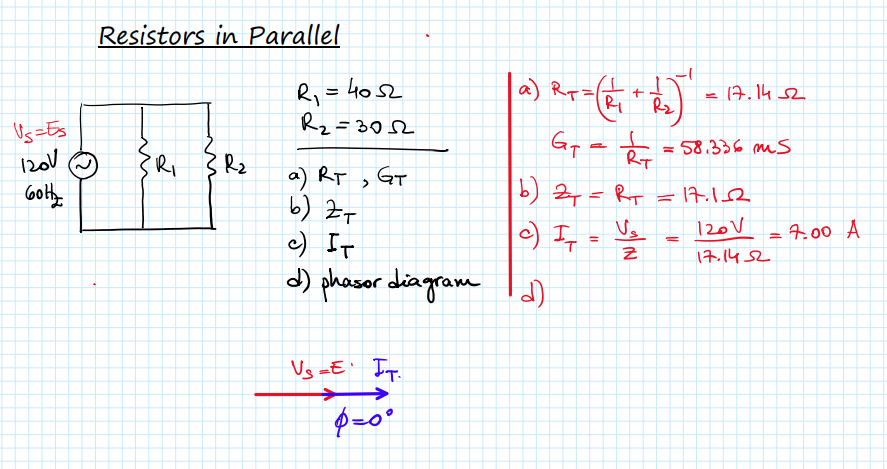 Resistors in Parallel
Vs=Es
120V
60Hz
R1
R2
R1 = 40Ω
R2 = 30Ω
a) RT , GT
b) ZT
c) IT
d) phasor diagram
a) RT = (1/R1 + 1/R2)^-1 = 17.14 Ω
GT = 1/RT = 58.336 mS
b) ZT = RT = 17.1Ω
c) IT = Vs/Z = 120V/17.14Ω = 7.00 A
d)
Vs=E IT
ϕ=0°